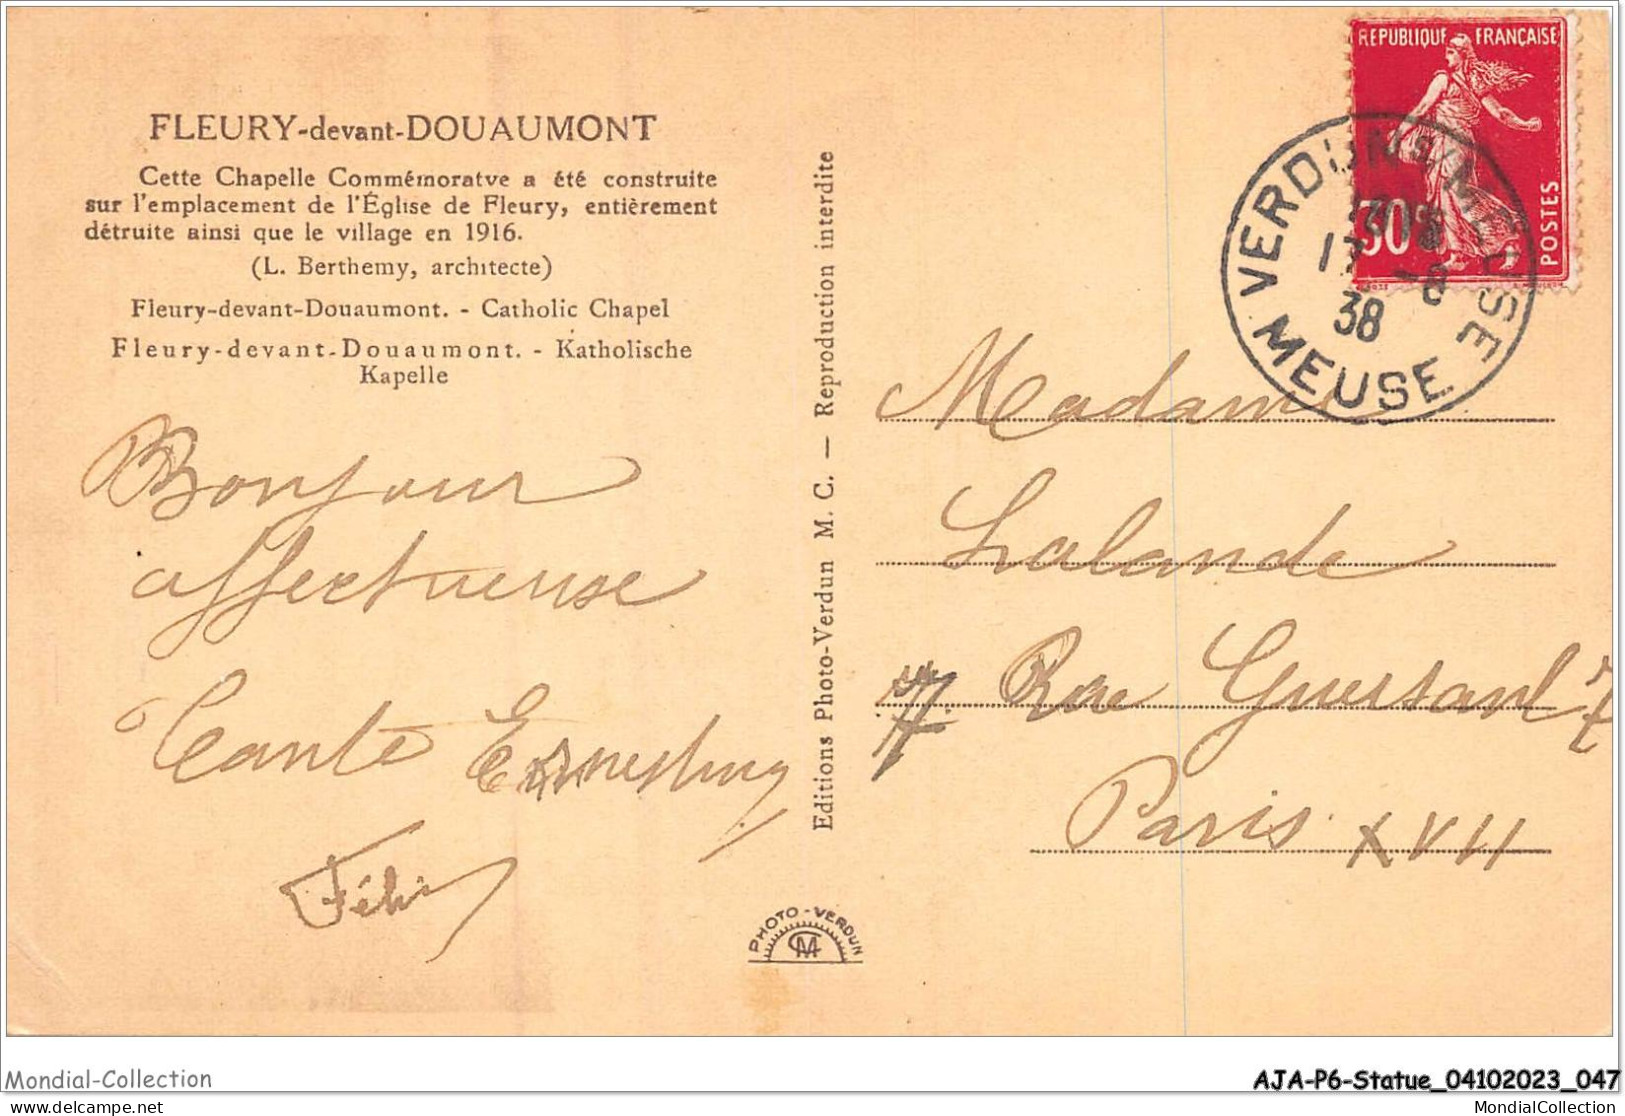 FLEURY-devant-DOUAUMONT
Cette Chapelle Commémoratve a été construite
sur l'emplacement de l'Église de Fleury, entièrement
détruite ainsi que le village en 1916.
(L. Berthemy, architecte)
Fleury-devant-Douaumont. - Catholic Chapel
Fleury-devant-Douaumont. - Katholische
Kapelle
Bonjour
affectueuse
Tante
Editions Photo-Verdun M. C. — Reproduction interdite
PHOTO-VERDUN
CM
REPUBLIQUE FRANÇAISE
POSTES
30c
VERDUN S/MEUSE
17 -8
38
MEUSE
Madame
Lalande
7 Rue Guersant 7
Paris XVII
Mondial-Collection
AJA-P6-Statue_04102023_047
delcampe.net
MondialCollection